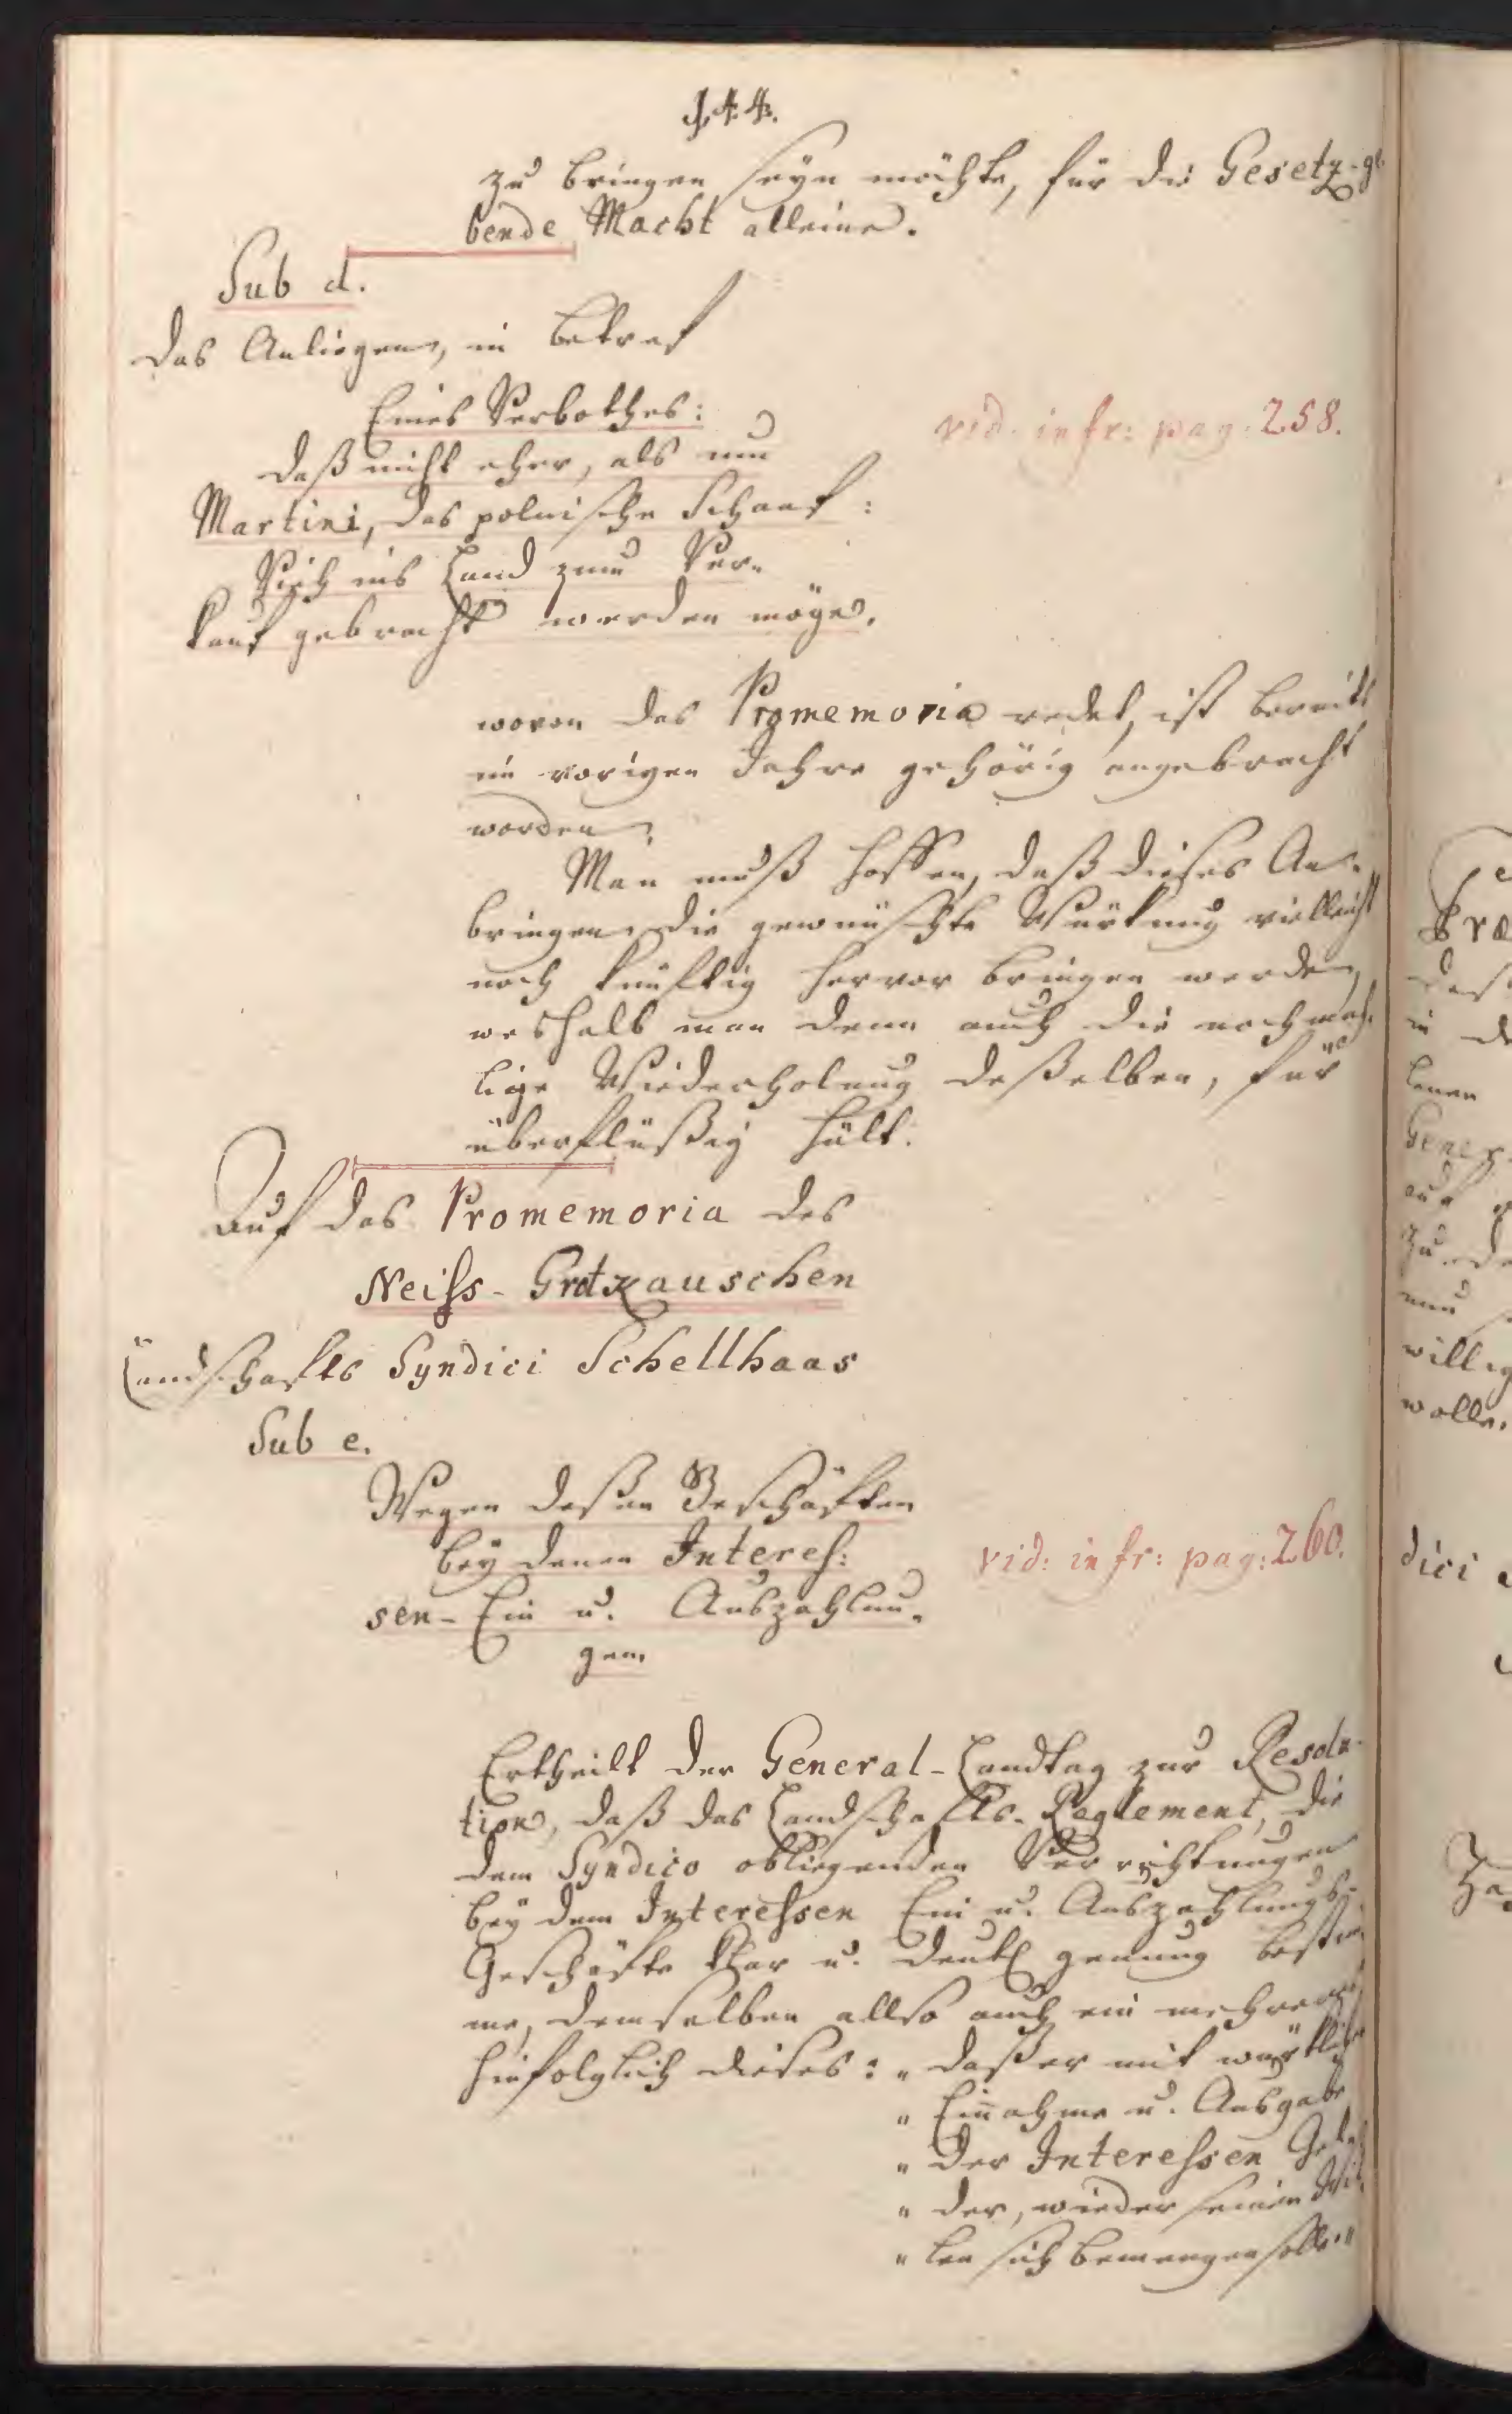 144.
zu bringen seyn möchte, für die Gesetz-ge
bende Macht alleine.
Sub d.
das Anliegen, in betref
Eines Verbothes:
daß nicht eher, als um
Martini, das polnische Schaaf:
Vieh ins Land zum Ver-
kauf gebracht werden möge.
vid. infr: pag. 258.
wovon das Promemoria redet, ist bereits
im vorigen Jahre gehörig angebracht
worden.
Man muß hoffen, daß dieses An-
bringen die gewünschte Würkung vielleicht
noch künftig hervor bringen werde,
weshalb man denn auch die nochmah-
lige Wiederholung deßelben, für
überflüßig hält.
Auf das Promemoria des
Neiss-Grotkauschen
Landschafts Syndici Schellhaas
Sub e.
Wegen deßen Geschäften
bey denen Interes:
sen-Ein u. Auszahlun-
gen
vid: infr: pag: 260.
Ertheilt der General-Landtag zur Resolu-
tion, daß das Landschafts-Reglement, die
dem Syndico obliegenden Verrichtungen
bey dem Interessen Ein u. Auszahlungs-
Geschäfte klar u. deutl genung bestim
me, demselben allso auch ein mehreres
hinfolglich dieses: „daß er mit würkliche
„Einnahme u. Ausgabe
„der Interessen Gel
„der, wieder seinen Wil
„len sich bemengen solle."